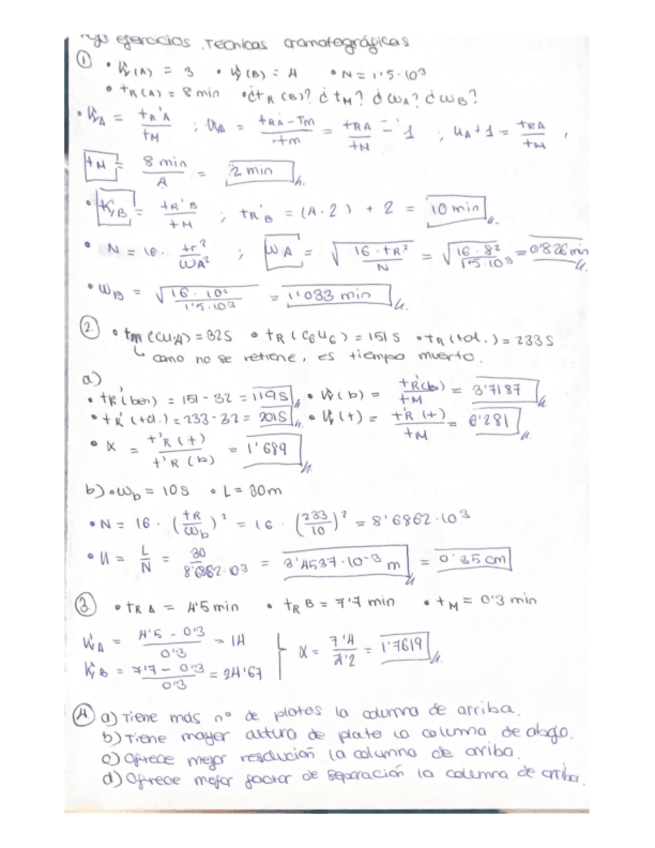 ejercicios Técnicas cromatográficas
① • K'(A) = 3 • K'(B) = 4 • N = 1'5·10³
• tR(A) = 8 min • ¿tR(B)? ¿tM? ¿WA? ¿WB?
• K'A = tR'A / tM ; K'A = (tRA - Tm) / tm = tRA / tM - 1 ; K'A + 1 = tRA / tM ,
tM = 8 min / 4 = 2 min
• K'B = tR'B / tM ; tR'B = (4·2) + 2 = 10 min
• N = 16 · tr² / WA² ; WA = √(16·tR² / N) = √(16·8² / 1'5·10³) = 0'826 min
• WB = √(16·10² / 1'5·10³) = 1'033 min
② • tm (CH4) = 32s • tR (C6H6) = 151 s • tR (tol.) = 233 s
como no se retiene, es tiempo muerto.
a)
• tR'(ben) = 151 - 32 = 119 s • K'(b) = tR'(b) / tM = 3'7187
• tR'(tol.) = 233 - 32 = 201 s • K'(t) = t'R(t) / tM = 6'281
• α = t'R(t) / t'R(b) = 1'689
b) • Wb = 10s • L = 30m
• N = 16 · (tR / Wb)² = 16 · (233 / 10)² = 8'6862·10³
• H = L / N = 30 / 8'6862·10³ = 3'4537·10⁻³ m = 0'35 cm
③ • tR A = 4'5 min • tR B = 7'7 min • tM = 0'3 min
K'A = (4'5 - 0'3) / 0'3 = 14
K'B = (7'7 - 0'3) / 0'3 = 24'67
α = 7'4 / 4'2 = 1'7619
④ a) Tiene más nº de platos la columna de arriba.
b) Tiene mayor altura de plato la columna de abajo.
c) Ofrece mejor resolución la columna de arriba.
d) Ofrece mejor factor de separación la columna de arriba.